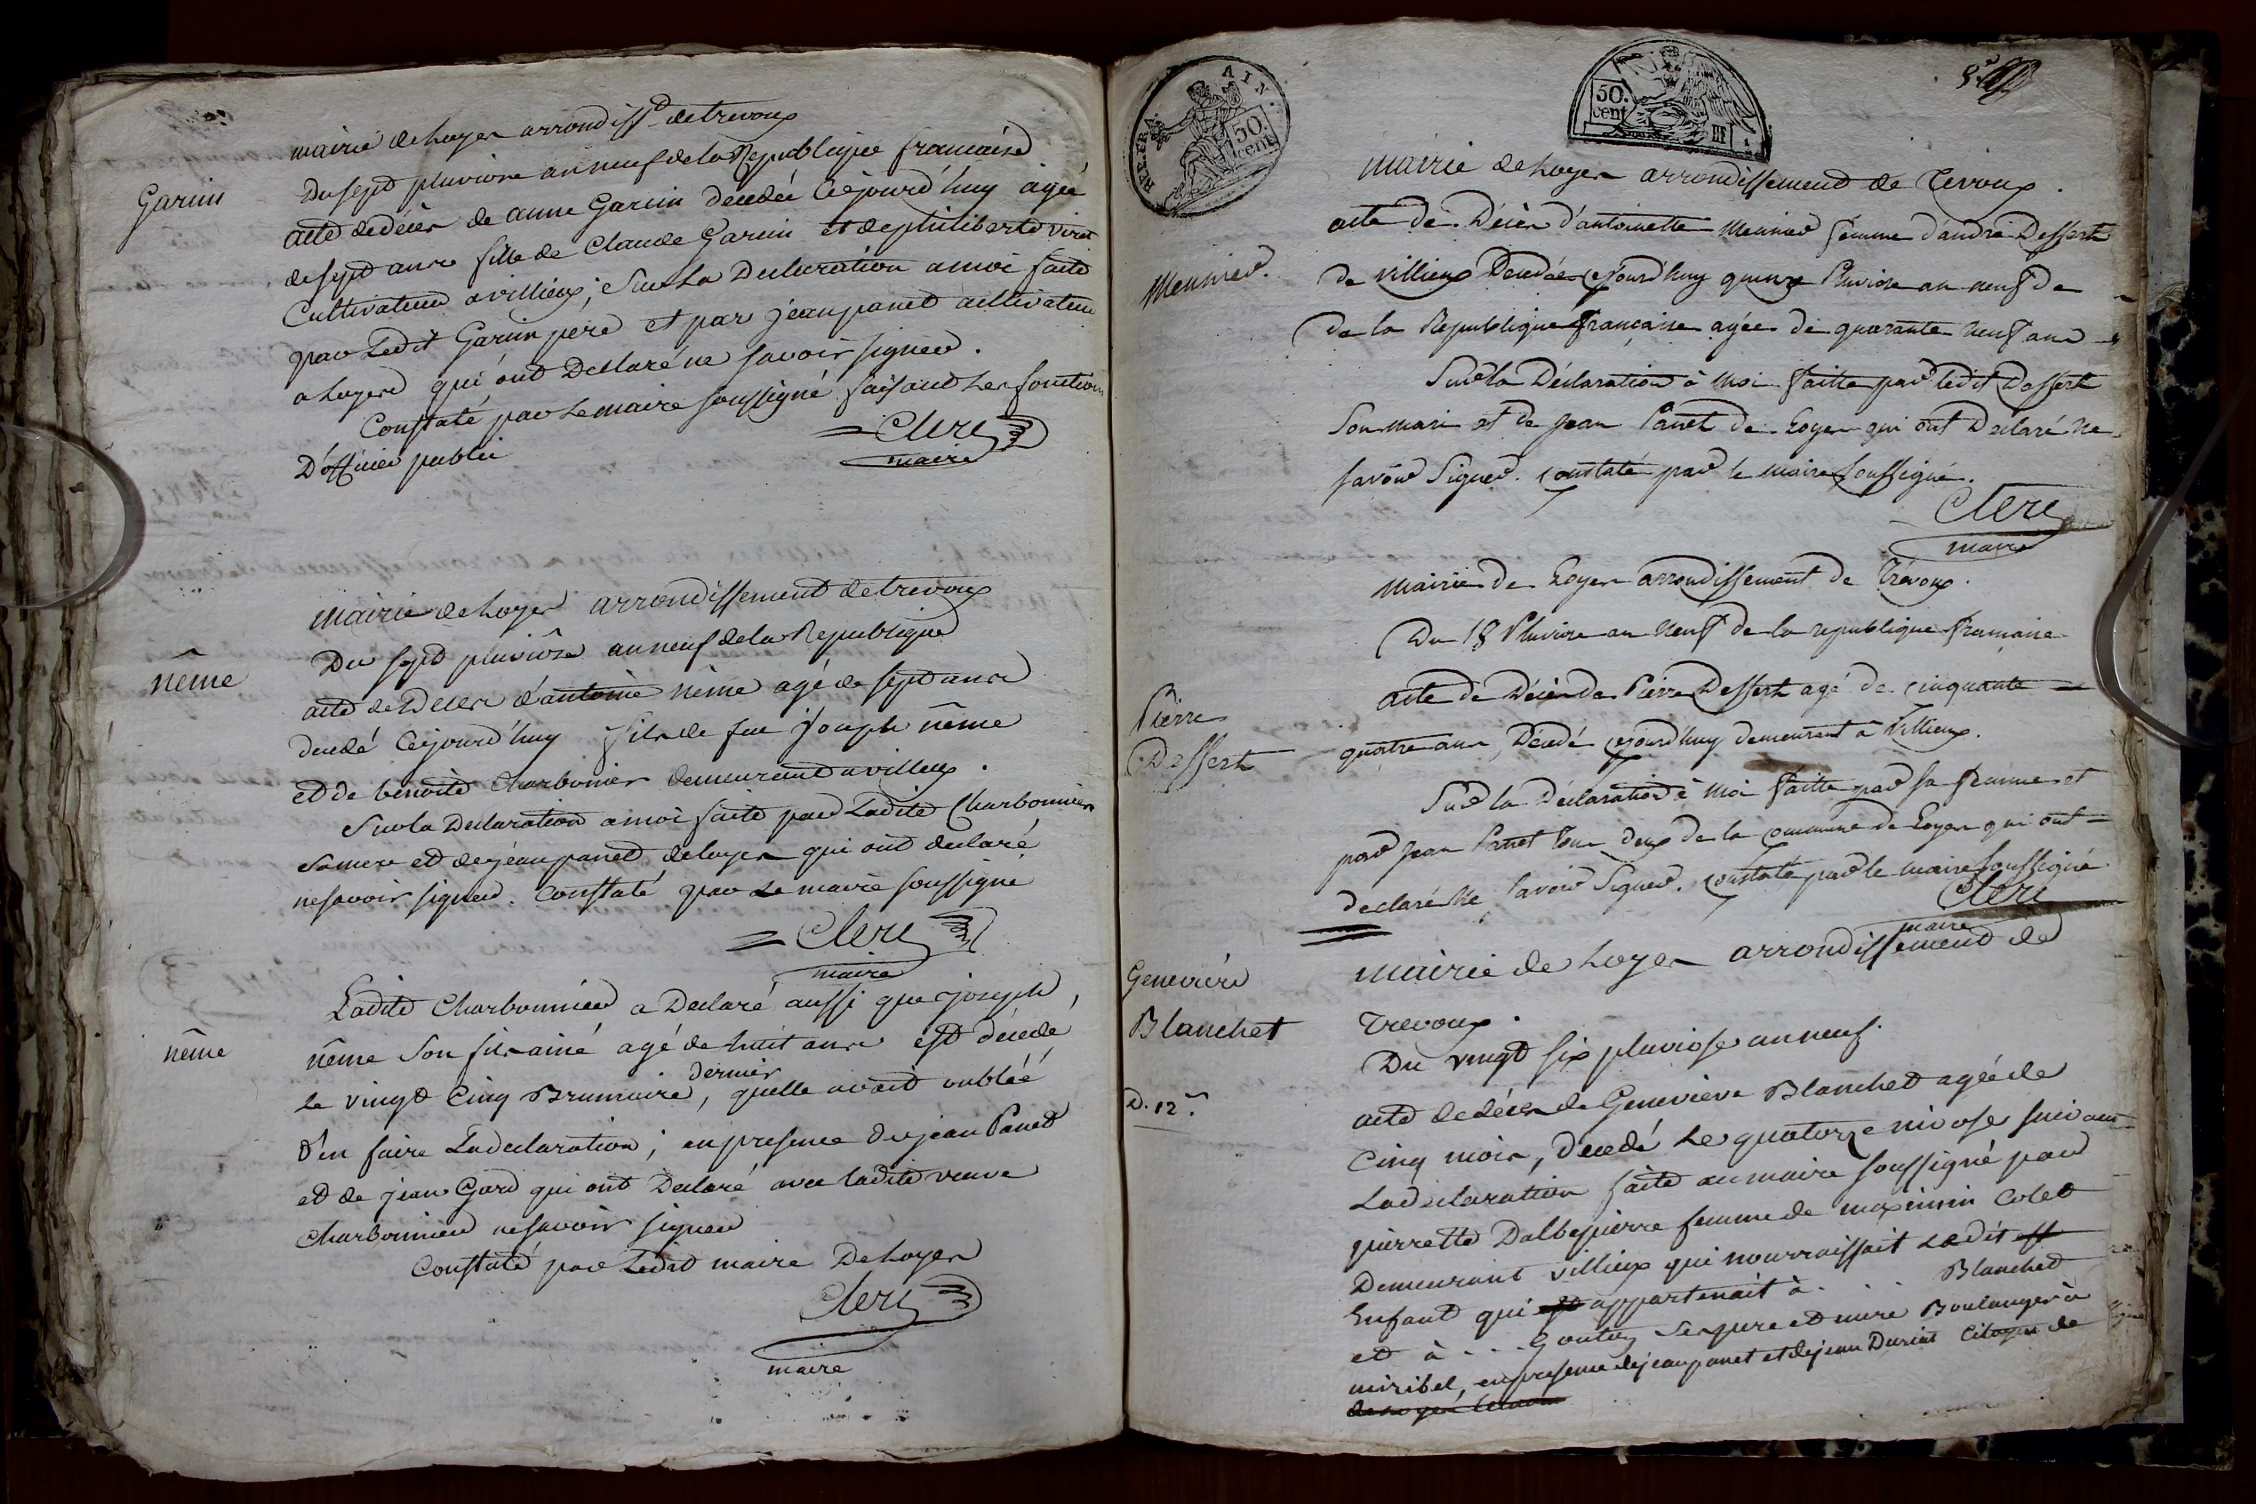 Garcin
mairie de Loyes arrondisst de trevoux
Du sept pluviose an neuf de la Republique francaise
acte de décès de anne Garcin decedée Cejourd'huy agée
de sept ans fille de Claude Garcin et de philiberte viret
Cultivateur a villieux; Sur La Declaration a moi faite
par Ledit Garcin pere et par jean panet cultivateur
a Loyes qui ont Declaré ne savoir signer.
Constaté par Le maire soussigné faisant Les fonctions
D'officier public
Clerc
maire
mairie de Loyes arrondissement de trevoux
Du sept pluviôse an neuf de la Republique
nême
acte de Deces d'antoine nême agé de sept ans
decedé Cejourd'huy fils de feu Joseph nême
et de benoite Charbonier demeurant a villieux.
Sur la Declaration a moi faite par Ladite Charbonnier
sa mere et de jean panet de loyes qui ont declaré
ne savoir signer. Constaté par Le maire soussigné
Clerc
maire
Ladite Charbonnier a Declaré aussi que joseph
nême
nême Son fils ainé agé de huit ans est décedé
Le vingt Cinq Brumaire dernier, quelle avait oubléé
d'en faire La declaration; en presence de jean Panet
et de jean Gard qui ont Declaré avec ladite veuve
Charbonnier ne savoir signer
Constaté par Ledit maire De Loyes
Clerc
maire
AIN
50. cent
50. cent
RF
mairie de Loyes arrondissement de Trevoux.
acte de Décès d'antoinette Meunier femme d'andré Dessert
Meunier.
de villieux Decedée cejourd'huy quinze Pluviose an neuf de
de la Republique Française agée de quarante neuf ans
Sur la Déclaration à Moi faitte par ledit Dessert
Son mari et de Jean Panet de Loyes qui ont Déclaré ne
savoir Signer. constaté par le maire soussigné.
Clerc
maire
Mairie de Loyes arrondissement de Trévoux.
Du 18 Pluviose an neuf de la republique francaise
Pierre
Dessert
acte de Décès de Pierre Dessert agé de cinquante
quatre ans, Décedé cejourd'huy demeurant à Villieux.
Sur la Déclaration à Moi faitte par sa femme et
par Jean Panet tous deux de la commune de Loyes qui ont
declaré ne savoir Signer. constaté par le maire soussigné
Clerc
maire
Genevieve
Blanchet
D. 12.
mairie de Loyes arrondissement de
Trevoux.
Du vingt six pluviose an neuf.
acte de décès de Genevieve Blanchet agée de
Cinq mois, décedé Le quatorze nivose suivant
La declaration faite au maire soussigné par
pierrette Dalbepierre femme de maximin Colet
Demeurant villieux qui nourraissait Ledit est
Enfant qui est appartenait à . . . Blanchet
et à . . . Goutey Ses pere et mere Boulanger à
miribel, en presence de jean panet et de jean Duriat Citoyen de
de Loyes